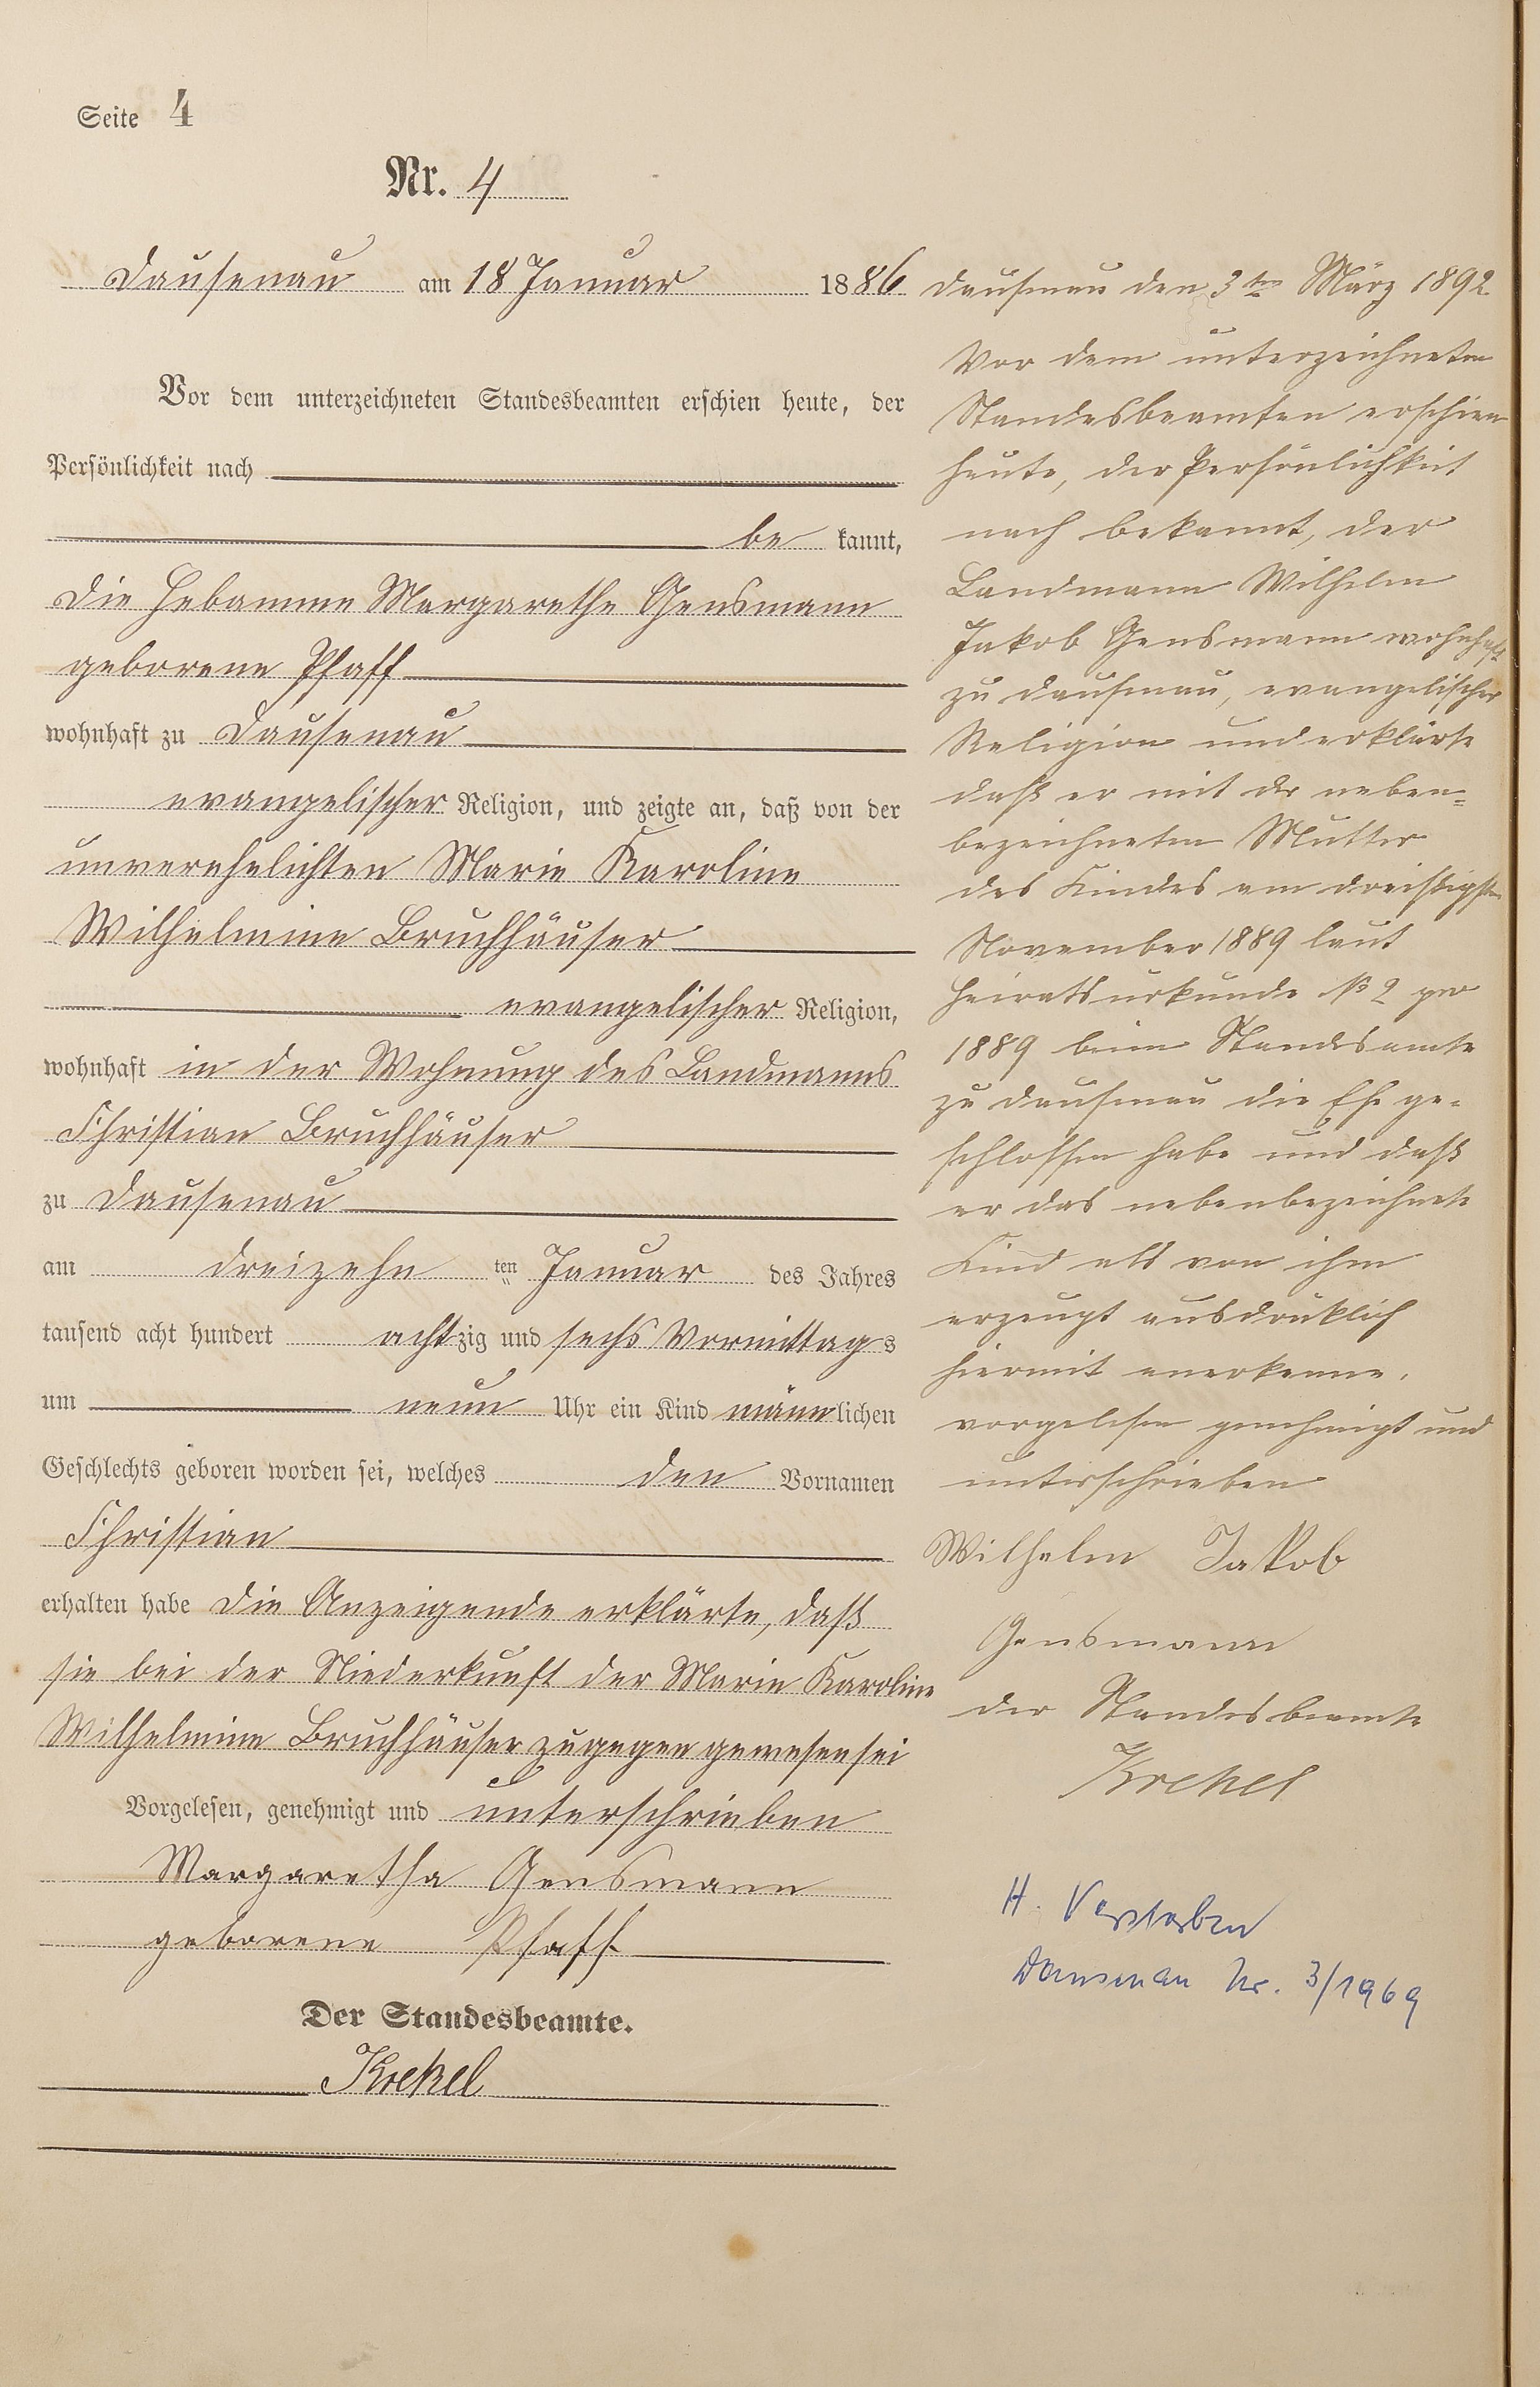 Seite 4
Nr. 4
Dausenau am 18 Januar 1886
Vor dem unterzeichneten Standesbeamten erschien heute, der
Persönlichkeit nach
be kannt,
die Hebamme Margarethe Gensmann
geborene Pfaff
wohnhaft zu Dausenau
evangelischer Religion, und zeigte an, daß von der
unverehelichten Marie Karoline
Wilhelmine Bruchhäuser
evangelischer Religion,
wohnhaft in der Wohnung des Landmanns
Christian Bruchhäuser
zu Dausenau
am dreizehn ten Januar des Jahres
tausend acht hundert achtzig und sechs Vormittags
um neun Uhr ein Kind männlichen
Geschlechts geboren worden sei, welches den Vornamen
Christian
erhalten habe die Anzeigende erklärte, daß
sie bei der Niederkunft der Marie Karoline
Wilhelmine Bruchhäuser zugegen gewesen sei
Vorgelesen, genehmigt und unterschrieben
Margaretha Gensmann
geborene Pfaff
Der Standesbeamte.
Krekel
Dausenau den 3ten März 1892
Vor dem unterzeichneten
Standesbeamten erschien
heute, der Persönlichkeit
nach bekannt, der
Landmann Wilhelm
Jakob Gensmann wohnhaft
zu Dausenau, evangelischer
Religion und erklärte
daß er mit der neben=
bezeichneten Mutter
des Kindes am dreißigsten
November 1889 laut
Heiratsurkunde № 2 pro
1889 beim Standesamte
zu Dausenau die Ehe ge-
schlossen habe und daß
er das nebenbezeichnete
Kind als von ihm
erzeugt ausdrüklich
hiermit anerkenne.
vorgelesen genehmigt und
unterschrieben
Wilhelm Jakob
Gensmann
der Standesbeamte
Krekel
H. Verstorben
Dausenau Nr. 3/1969